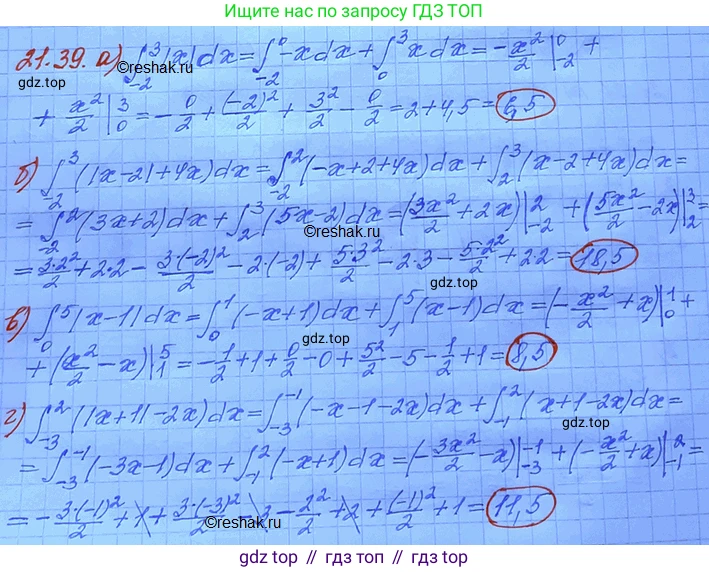 Ищите нас по запросу ГДЗ ТОП
21.39. а) ∫₋₂³|x|dx = ∫₋₂⁰ -x dx + ∫₀³ x dx = -x²/2 |₋₂⁰ +
gdz.top
©reshak.ru
+ x²/2 |₀³ = -0/2 + (-2)²/2 + 3²/2 - 0/2 = 2 + 4,5 = 6,5
gdz.top
б) ∫₋₂³(|x-2|+4x)dx = ∫₋₂²(-x+2+4x)dx + ∫₂³(x-2+4x)dx =
= ∫₋₂²(3x+2)dx + ∫₂³(5x-2)dx = (3x²/2 + 2x)|₋₂² + (5x²/2 - 2x)|₂³ =
©reshak.ru
= 3·2²/2 + 2·2 - 3·(-2)²/2 - 2·(-2) + 5·3²/2 - 2·3 - 5·2²/2 + 2·2 = 18,5
gdz.top
в) ∫₀⁵|x-1|dx = ∫₀¹(-x+1)dx + ∫₁⁵(x-1)dx = (-x²/2 + x)|₀¹ +
gdz.top
+ (x²/2 - x)|₁⁵ = -1/2 + 1 + 0/2 - 0 + 5²/2 - 5 - 1/2 + 1 = 8,5
г) ∫₋₃²(|x+1|-2x)dx = ∫₋₃⁻¹(-x-1-2x)dx + ∫₋₁²(x+1-2x)dx =
gdz.top
= ∫₋₃⁻¹(-3x-1)dx + ∫₋₁²(-x+1)dx = (-3x²/2 - x)|₋₃⁻¹ + (-x²/2 + x)|₋₁² =
= -3·(-1)²/2 + 1 + 3·(-3)²/2 - 3 - 2²/2 + 2 + (-1)²/2 + 1 = 11,5
gdz.top
©reshak.ru
gdz.top // гдз.топ // gdz.top // гдз.топ // gdz.top